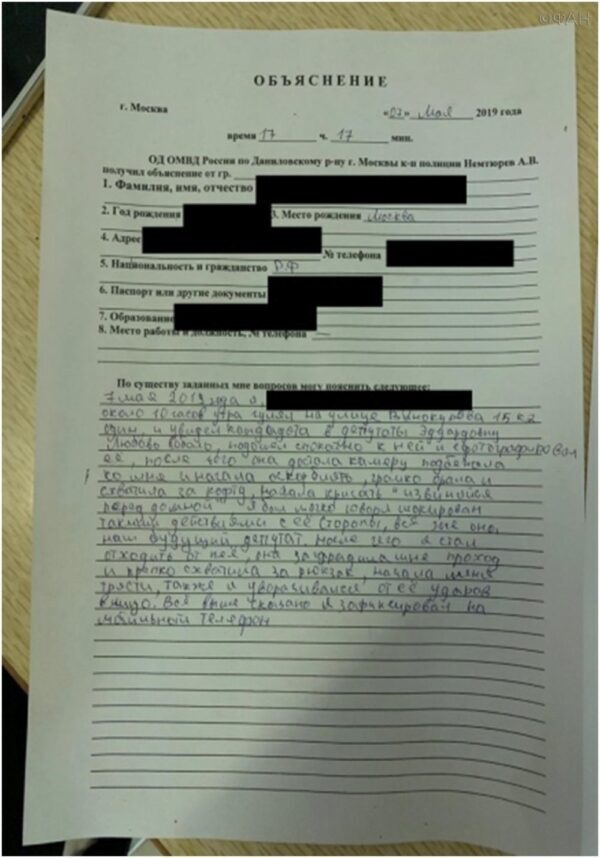 ©ФАН
ОБЪЯСНЕНИЕ
г. Москва «07» Мая 2019 года
время 17 ч. 17 мин.
ОД ОМВД России по Даниловскому р-ну г. Москвы к-н полиции Немтюрев А.В.
получил объяснение от гр.
1. Фамилия, имя, отчество
2. Год рождения 3. Место рождения Москва
4. Адрес № телефона
5. Национальность и гражданство РФ
6. Паспорт или другие документы
7. Образование
8. Место работы и должность, № телефона —
По существу заданных мне вопросов могу пояснить следующее:
7 мая 2019 года я,
около 10 часов утра гулял на улице Винокурова 15 к2
один, и увидел кандидата в депутаты Эдуардовну
Любовь Соболь, подошел спокойно к ней и сфотографировал
её, после чего она достала камеру подбежала
ко мне и начала оскорблять, громко орала и
схватила за кофту, начала кричать "извинийся
перед домной" я был мягко говоря шокирован
такими действиями с её стороны, все же она,
наш будущий депутат. после чего я стал
отходить от неё, она заградила мне проход
и крепко схватила за рюкзак, начала меня
трясти, также я уворачивался от её ударов
в лицо. Всё выше сказано я зафиксировал на
мобильный телефон